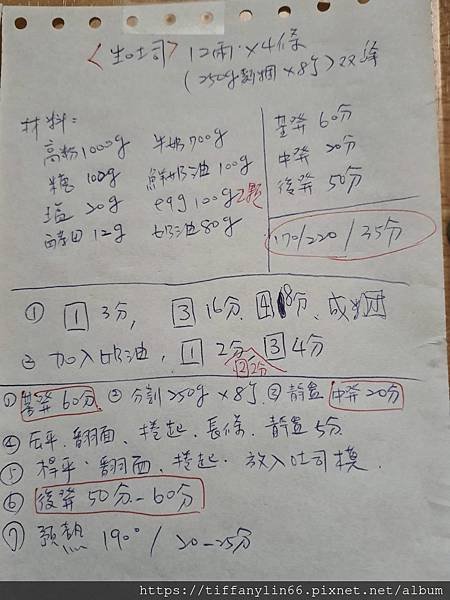 <生吐司> 12兩×4條
(250g 麵糰×8個) 2又條
材料:
高粉1000g 牛奶700g
糖100g 鮮奶油100g
塩20g egg 100g 2顆
酵母12g 奶油80g
基發 60分
中發 20分
後發 50分
170/220 / 35分
① 1 3分, 3 16分 4 8分, 成糰
② 加入奶油, 1 2分 3 4分
2 2分
① 基發 60分 ② 分割250g×8個 ③ 靜置 中發20分
④ 压平.翻面.捲起.長條.靜置5分
⑤ 桿平.翻面.捲起.放入吐司模.
⑥ 後發 50分-60分
⑦ 預熱 190° / 20-25分
https://tiffanylin66.pixnet.net/album